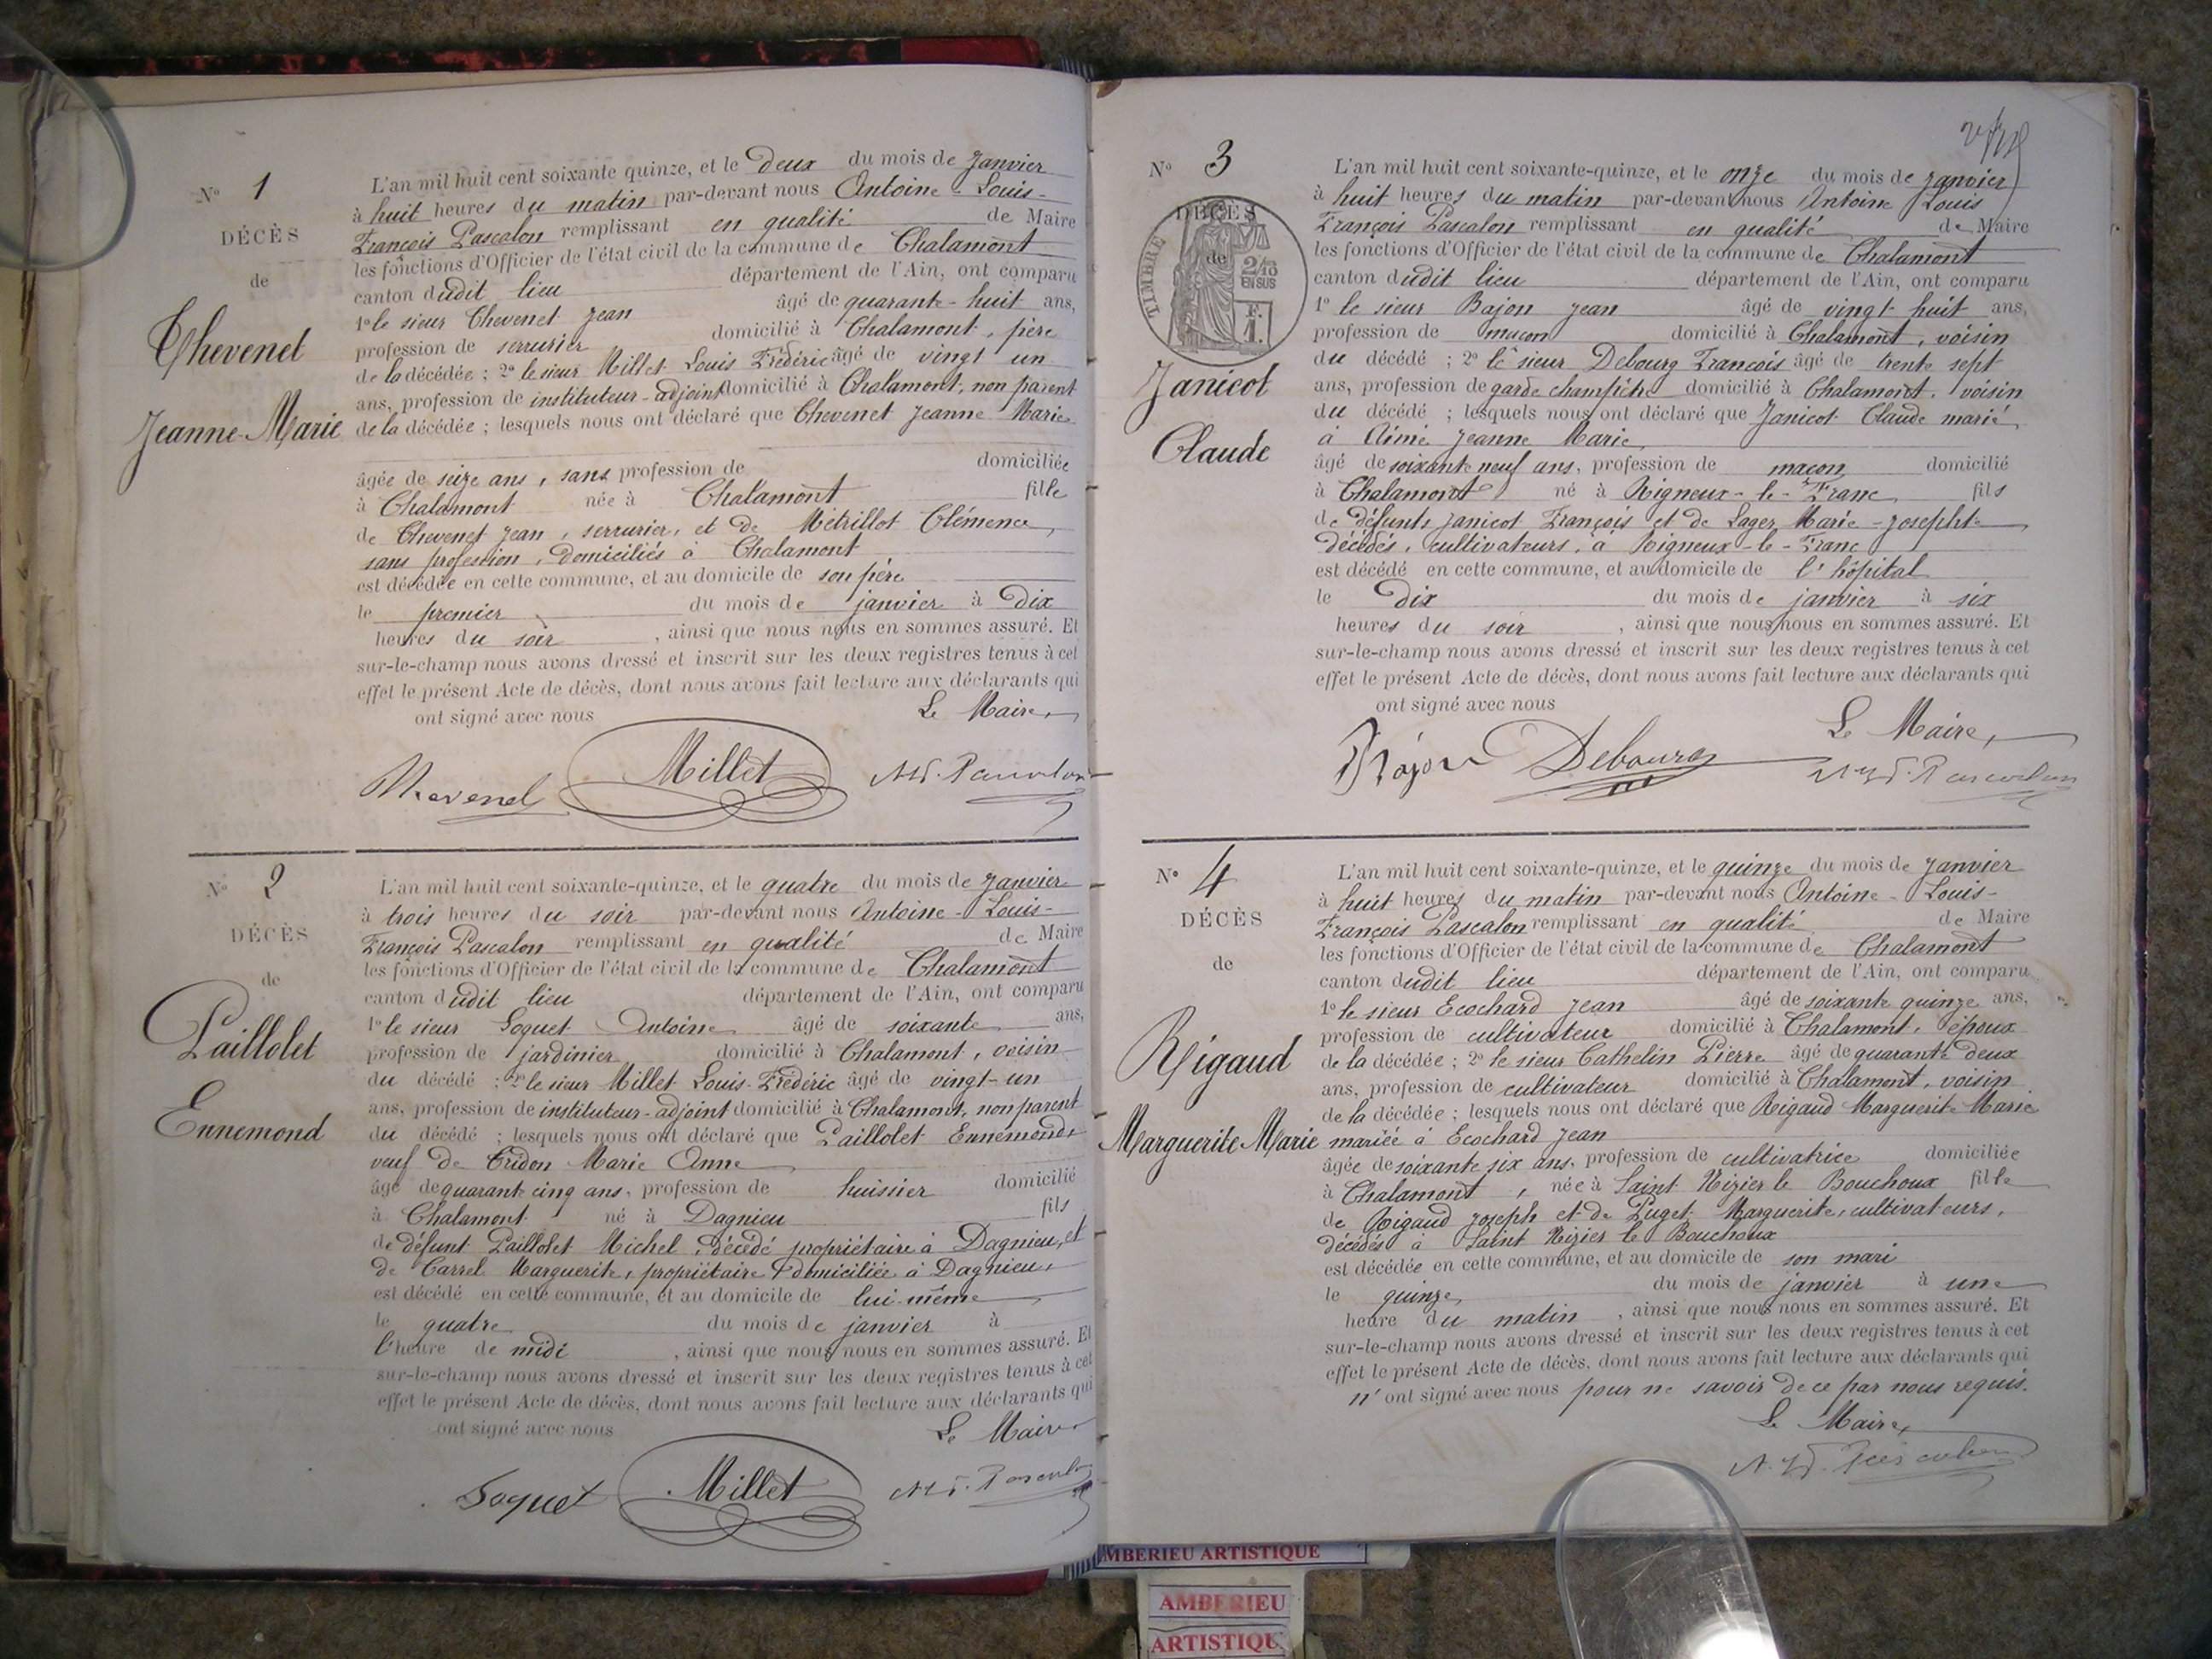 N° 1
DÉCÈS
de
Chevenet
Jeanne-Marie
L'an mil huit cent soixante quinze, et le Deux du mois de Janvier
à huit heures du matin par-devant nous Antoine-Louis-
François Pascalon remplissant en qualité de Maire
les fonctions d'Officier de l'état civil de la commune de Chalamont
canton dudit lieu département de l'Ain, ont comparu
1° le sieur Chevenet Jean âgé de quarante-huit ans,
profession de serrurier domicilié à Chalamont, père
de la décédée ; 2° le sieur Millet Louis Frédéric âgé de vingt un
ans, profession de instituteur-adjoint domicilié à Chalamont, non parent
de la décédée ; lesquels nous ont déclaré que Chevenet Jeanne Marie
âgée de seize ans, sans profession de domiciliée
à Chalamont née à Chalamont fille
de Chevenet Jean, serrurier, et de Métrillot Clémence,
sans profession, domiciliés à Chalamont
est décédée en cette commune, et au domicile de son père
le premier du mois de janvier à Dix
heures du soir, ainsi que nous nous en sommes assuré. Et
sur-le-champ nous avons dressé et inscrit sur les deux registres tenus à cet
effet le présent Acte de décès, dont nous avons fait lecture aux déclarants qui
ont signé avec nous Le Maire,
Chevenet Millet A.L.F. Pascalon
N° 2
DÉCÈS
de
Paillolet
Ennemond
L'an mil huit cent soixante-quinze, et le quatre du mois de Janvier
à trois heures du soir par-devant nous Antoine-Louis-
François Pascalon remplissant en qualité de Maire
les fonctions d'Officier de l'état civil de la commune de Chalamont
canton dudit lieu département de l'Ain, ont comparu
1° le sieur Soquet Antoine âgé de soixante ans,
profession de jardinier domicilié à Chalamont, voisin
du décédé ; 2° le sieur Millet Louis-Frédéric âgé de vingt-un
ans, profession de instituteur-adjoint domicilié à Chalamont, non parent
du décédé ; lesquels nous ont déclaré que Paillolet Ennemond,
veuf de Tridon Marie Anne
âgé de quarante cinq ans, profession de huissier domicilié
à Chalamont né à Dagnieu fils
de défunt Paillolet Michel, décédé propriétaire à Dagnieu, et
de Carrel Marguerite, propriétaire domiciliée à Dagnieu,
est décédé en cette commune, et au domicile de lui-même
le quatre du mois de janvier à
l'heure de midi, ainsi que nous nous en sommes assuré. Et
sur-le-champ nous avons dressé et inscrit sur les deux registres tenus à cet
effet le présent Acte de décès, dont nous avons fait lecture aux déclarants qui
ont signé avec nous Le Maire
Soquet Millet A.L.F. Pascalon
N° 3
DÉCÈS
de
TIMBRE
2/10
EN SUS
F.
1.
Janicot
Claude
L'an mil huit cent soixante-quinze, et le onze du mois de janvier
à huit heures du matin par-devant nous Antoine Louis
François Pascalon remplissant en qualité de Maire
les fonctions d'Officier de l'état civil de la commune de Chalamont
canton dudit lieu département de l'Ain, ont comparu
1° le sieur Bajon Jean âgé de vingt huit ans,
profession de maçon domicilié à Chalamont, voisin
du décédé ; 2° le sieur Debourg François âgé de trente sept
ans, profession de garde champêtre domicilié à Chalamont, voisin
du décédé ; lesquels nous ont déclaré que Janicot Claude marié
à Aimé Jeanne Marie
âgé de soixante neuf ans, profession de maçon domicilié
à Chalamont né à Rigneux-le-Franc fils
de défunts Janicot François et de Lager Marie-Josephte
décédés, cultivateurs, à Rigneux-le-Franc
est décédé en cette commune, et au domicile de l'hôpital
le Dix du mois de janvier à six
heures du soir, ainsi que nous nous en sommes assuré. Et
sur-le-champ nous avons dressé et inscrit sur les deux registres tenus à cet
effet le présent Acte de décès, dont nous avons fait lecture aux déclarants qui
ont signé avec nous Le Maire,
Bajon Debourg A.L.F. Pascalon
N° 4
DÉCÈS
de
Rigaud
Marguerite Marie
L'an mil huit cent soixante-quinze, et le quinze du mois de Janvier
à huit heures du matin par-devant nous Antoine-Louis-
François Pascalon remplissant en qualité de Maire
les fonctions d'Officier de l'état civil de la commune de Chalamont
canton dudit lieu département de l'Ain, ont comparu
1° le sieur Ecochard Jean âgé de soixante quinze ans,
profession de cultivateur domicilié à Chalamont, époux
de la décédée ; 2° le sieur Cathelin Pierre âgé de quarante deux
ans, profession de cultivateur domicilié à Chalamont, voisin
de la décédée ; lesquels nous ont déclaré que Rigaud Marguerite Marie
mariée à Ecochard Jean
âgée de soixante six ans, profession de cultivatrice domiciliée
à Chalamont, née à Saint Nizier le Bouchoux fille
de Rigaud Joseph et de Puget Marguerite, cultivateurs,
décédés à Saint Nizier le Bouchoux
est décédée en cette commune, et au domicile de son mari
le quinze du mois de janvier à une
heure du matin, ainsi que nous nous en sommes assuré. Et
sur-le-champ nous avons dressé et inscrit sur les deux registres tenus à cet
effet le présent Acte de décès, dont nous avons fait lecture aux déclarants qui
n'ont signé avec nous pour ne savoir de ce par nous requis.
Le Maire,
A.L.F. Pascalon
MBERIEU ARTISTIQUE
AMBERIEU
ARTISTIQU